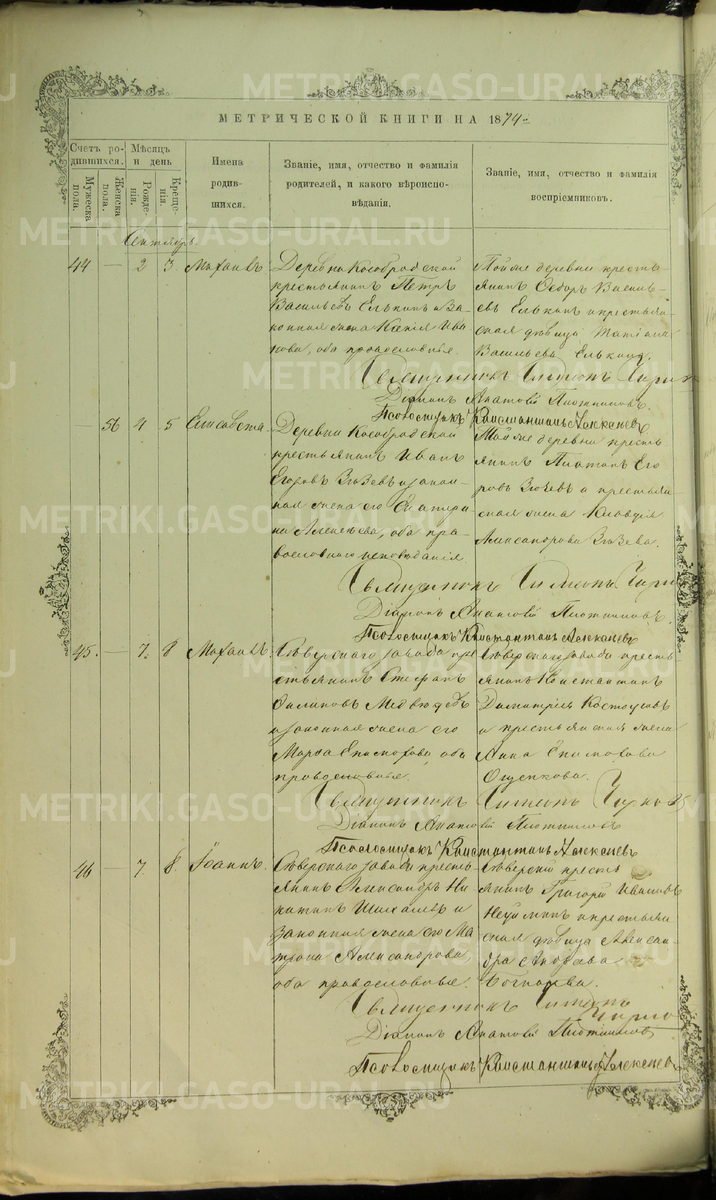 METRIKI.GASO-URAL.RU
МЕТРИЧЕСКОЙ КНИГИ НА 1874
Счетъ родившихся.
Мужеска пола.
Женска пола.
Мѣсяцъ и день
Рожденія.
Крещенія.
Имена родившихся.
Званіе, имя, отчество и фамилія родителей, и какого вѣроисповѣданія.
Званіе, имя, отчество и фамилія воспріемниковъ.
Сентябрь.
44 — 2 3 Михаилъ
Деревни Кособродской
крестьянинъ Петръ
Васильевъ Елькинъ и за
конная жена Ксенія Ива
нова, оба православные.
Тойже деревни кресть
янинъ Ѳедоръ Василь
евъ Елькинъ и крестьян
ская дѣвица Татіана
Васильева Елькина.
Священникъ
Діаконъ Плотниковъ.
Псаломщикъ Константинъ Алексеевъ
— 56 4 5 Елисавета
Деревни Кособродской
крестьянинъ Иванъ
Егоровъ и закон
ная жена его Екатери
на Алексѣева, оба пра
вославнаго исповѣданія
Тойже деревни кресть
янинъ Платонъ Его
ровъ и крестьян
ская жена Клавдія
Александрова
Священникъ
Діаконъ Плотниковъ.
Псаломщикъ Константинъ Алексеевъ
45. — 7. 8 Михаилъ.
Сѣверскаго завода кре
стьянинъ Стефанъ
Филиповъ Медвѣдевъ
и законная жена его
Марѳа оба
православные.
Сѣверскаго завода кресть
янинъ Константинъ
Димитріевъ Костоусовъ
и крестьянская жена
Анна
Ощепкова.
Священникъ
Діаконъ Плотниковъ
Псаломщикъ Константинъ Алексеевъ
46 — 7. 8. Іоаннъ.
Сѣверскаго завода кресть
янинъ Александръ Ни
китинъ и
законная жена его Ма
трона Александрова,
оба православные.
Сѣверскій кресть
янинъ Григорій Ивановъ
и крестьян
ская дѣвица Алексан
дра
Священникъ
Діаконъ Плотниковъ
Псаломщикъ Константинъ Алексеевъ